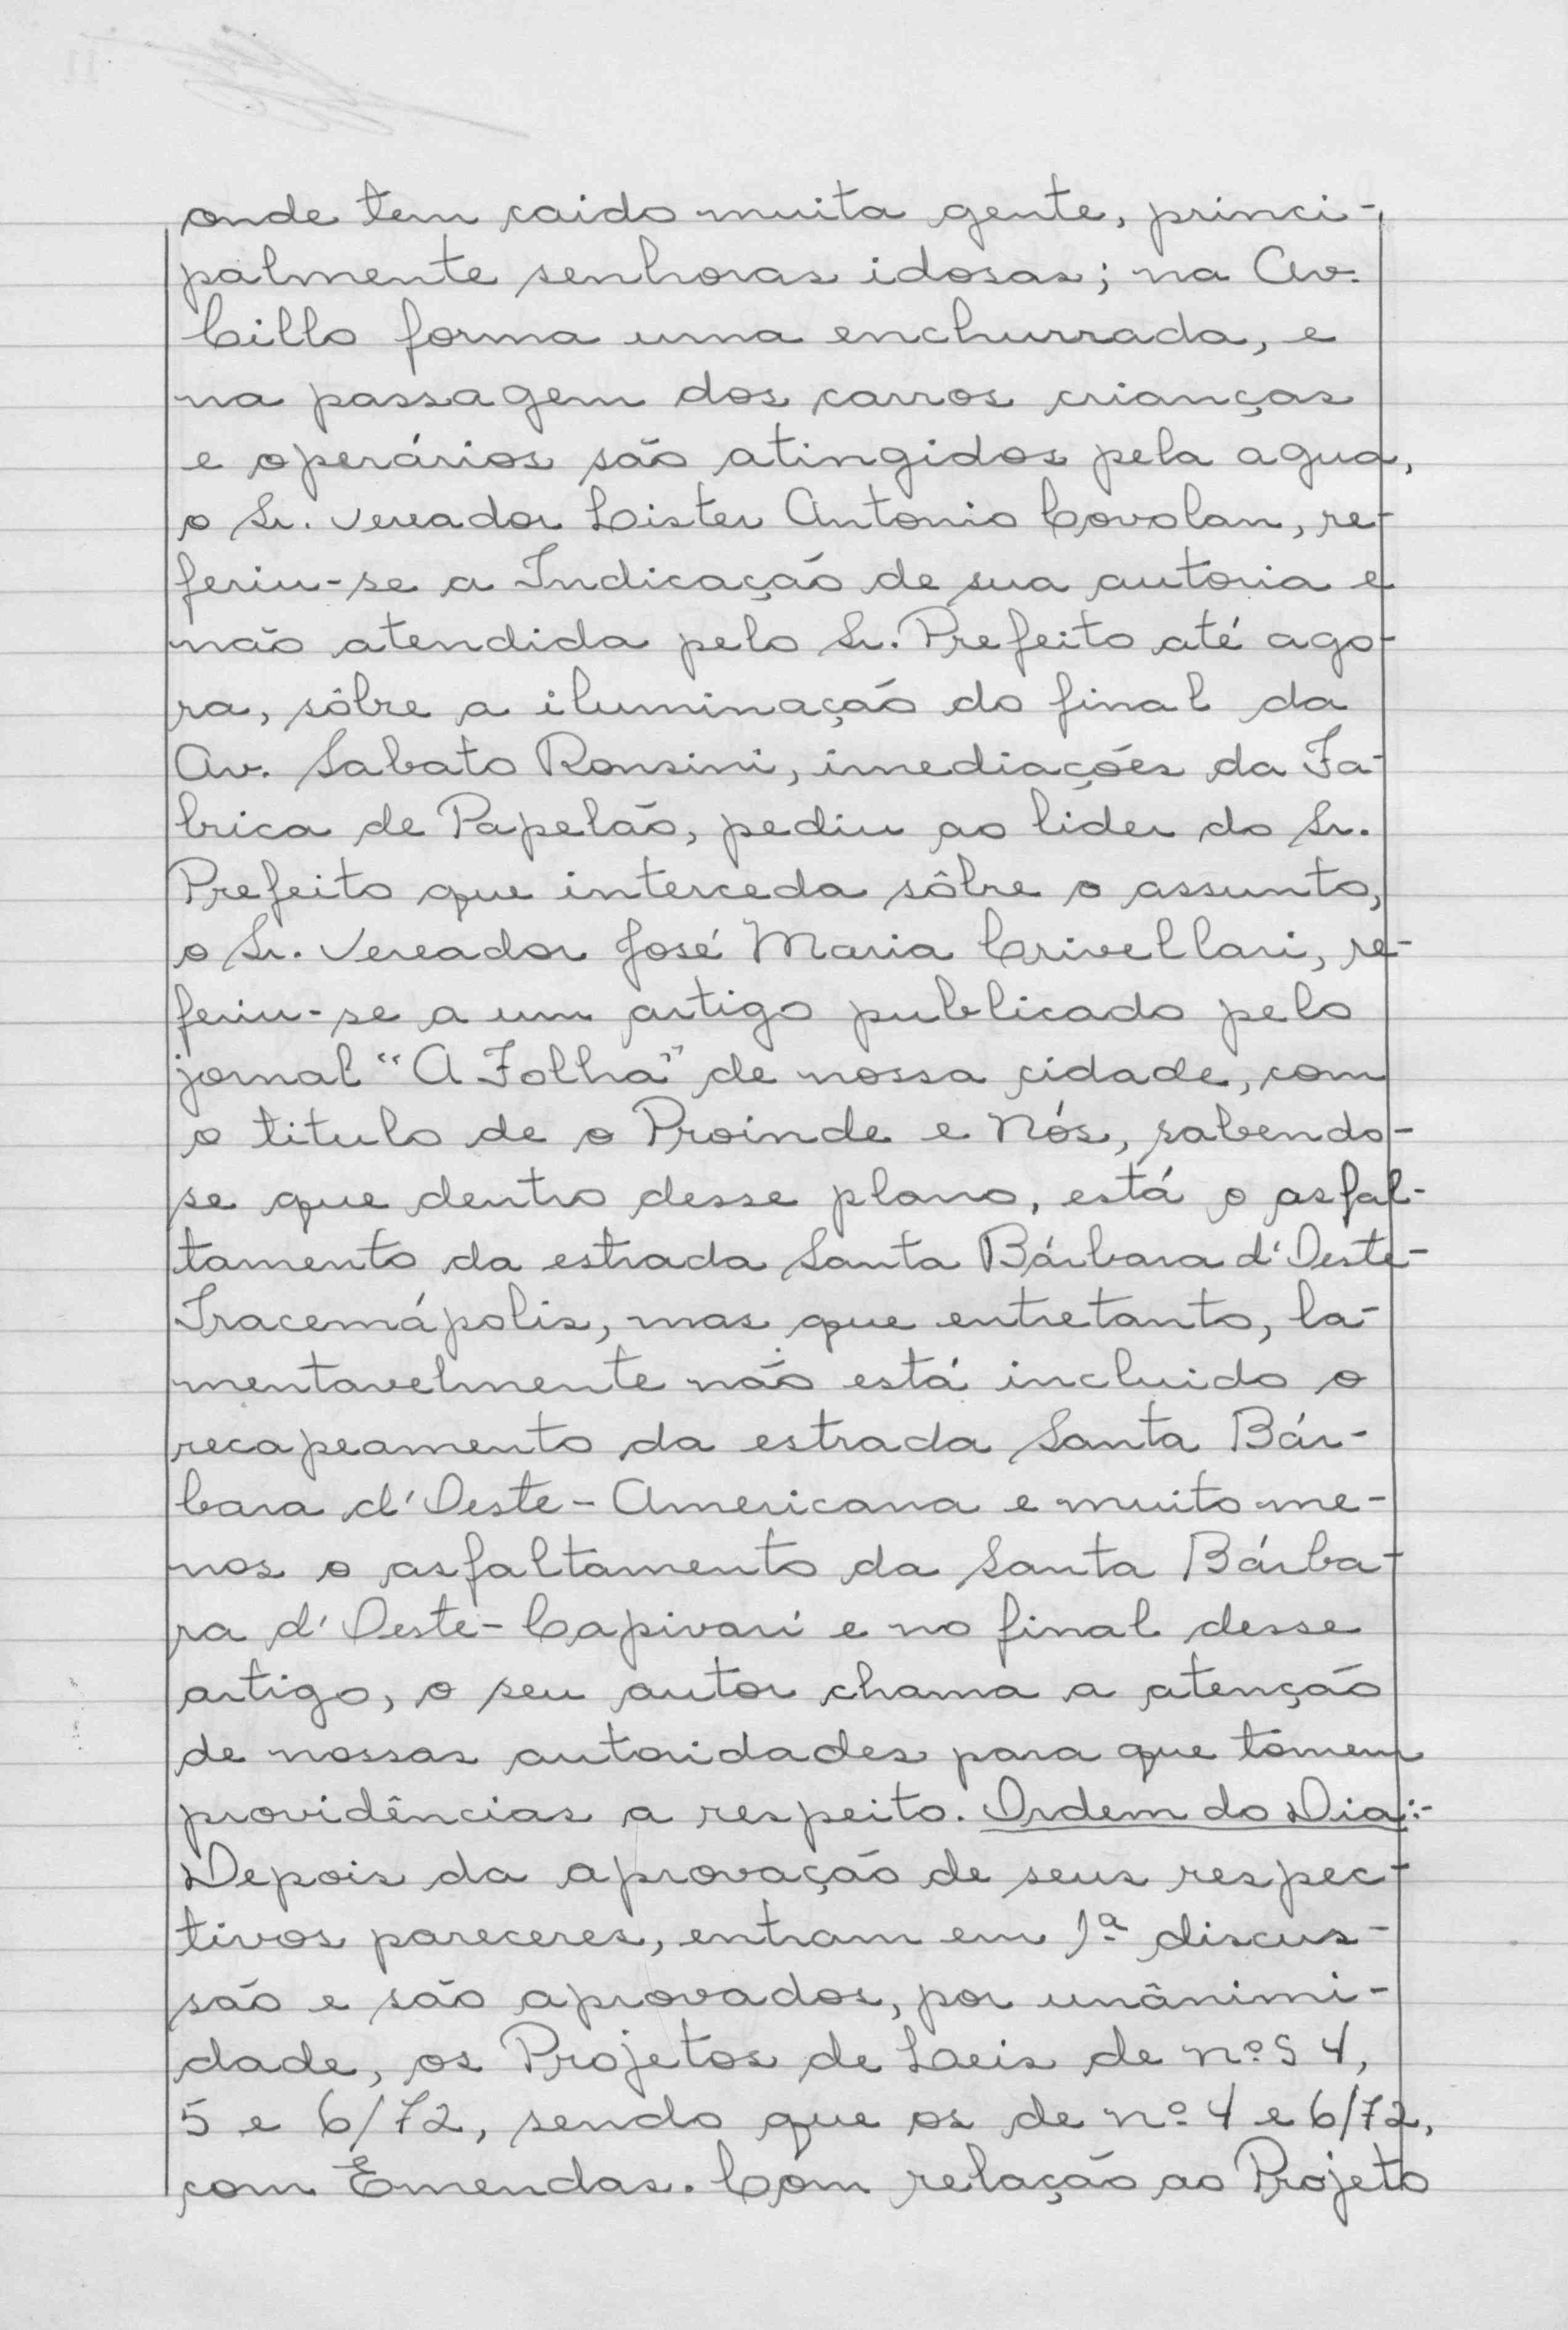 onde tem caido muita gente, princi-
palmente senhoras idosas; na Av.
Cillo forma uma enchurrada, e
na passagem dos carros crianças
e operários são atingidos pela agua,
o Sr. Vereador Lister Antonio Covolan, re-
feriu-se a Indicação de sua autoria e
não atendida pelo Sr. Prefeito até ago-
ra, sôbre a iluminação do final da
Av. Sabato Ronsini, imediações da Fa-
brica de Papelão, pediu ao lider do Sr.
Prefeito que interceda sôbre o assunto,
o Sr. Vereador José Maria Crivellari, re-
feriu-se a um artigo publicado pelo
jornal "A Folha" de nossa cidade, com
o titulo de o Proinde e Nós, sabendo-
se que dentro desse plano, está o asfal-
tamento da estrada Santa Bárbara d'Oeste-
Iracemápolis, mas que entretanto, la-
mentavelmente não está incluido o
recapeamento da estrada Santa Bár-
bara d'Oeste-Americana e muito me-
nos o asfaltamento da Santa Bárba-
ra d'Oeste-Capivarí e no final desse
artigo, o seu autor chama a atenção
de nossas autoridades para que tomem
providências a respeito. Ordem do Dia:-
Depois da aprovação de seus respec-
tivos pareceres, entram em 1ª discus-
são e são aprovados, por unânimi-
dade, os Projetos de Leis de nºs 4,
5 e 6/72, sendo que os de nº 4 e 6/72,
com Emendas. Com relação ao Projeto